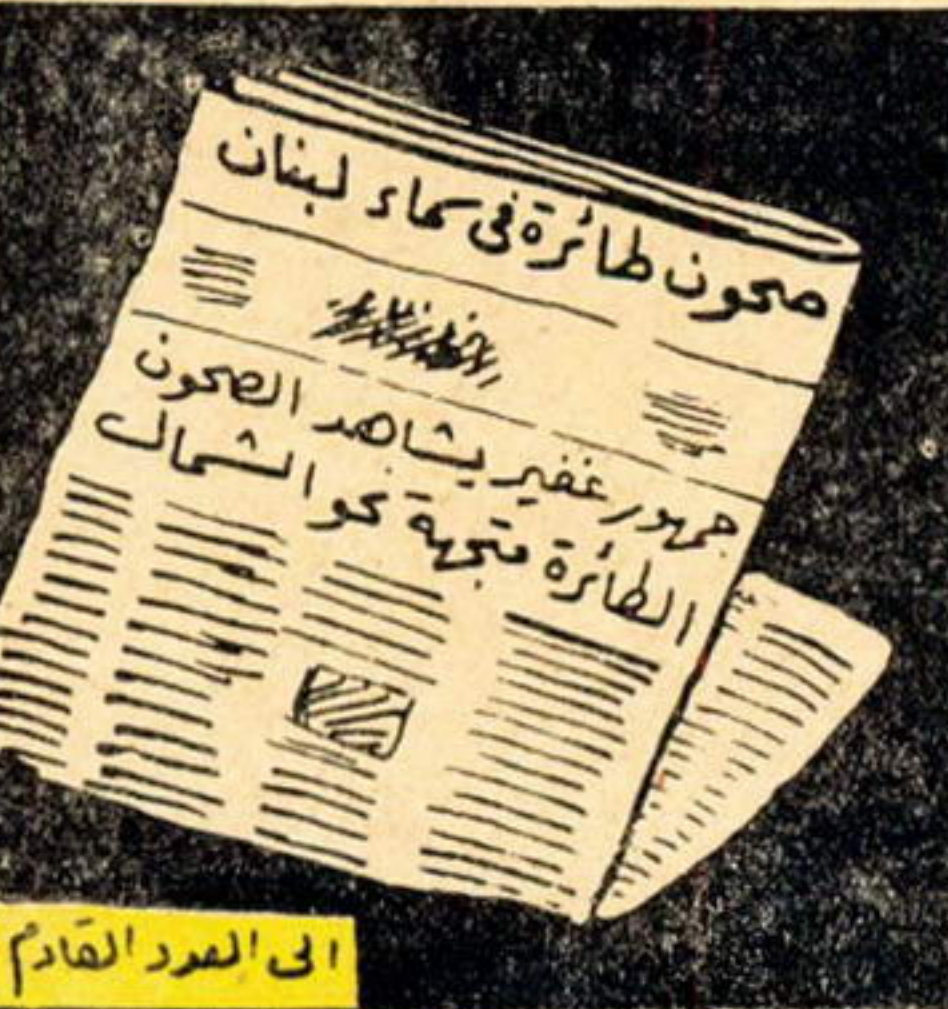 صحون طائرة فى سماء لبنان
جمهور غفير يشاهد الصحون
الطائرة متجهة نحو الشمال
الى العدد القادم